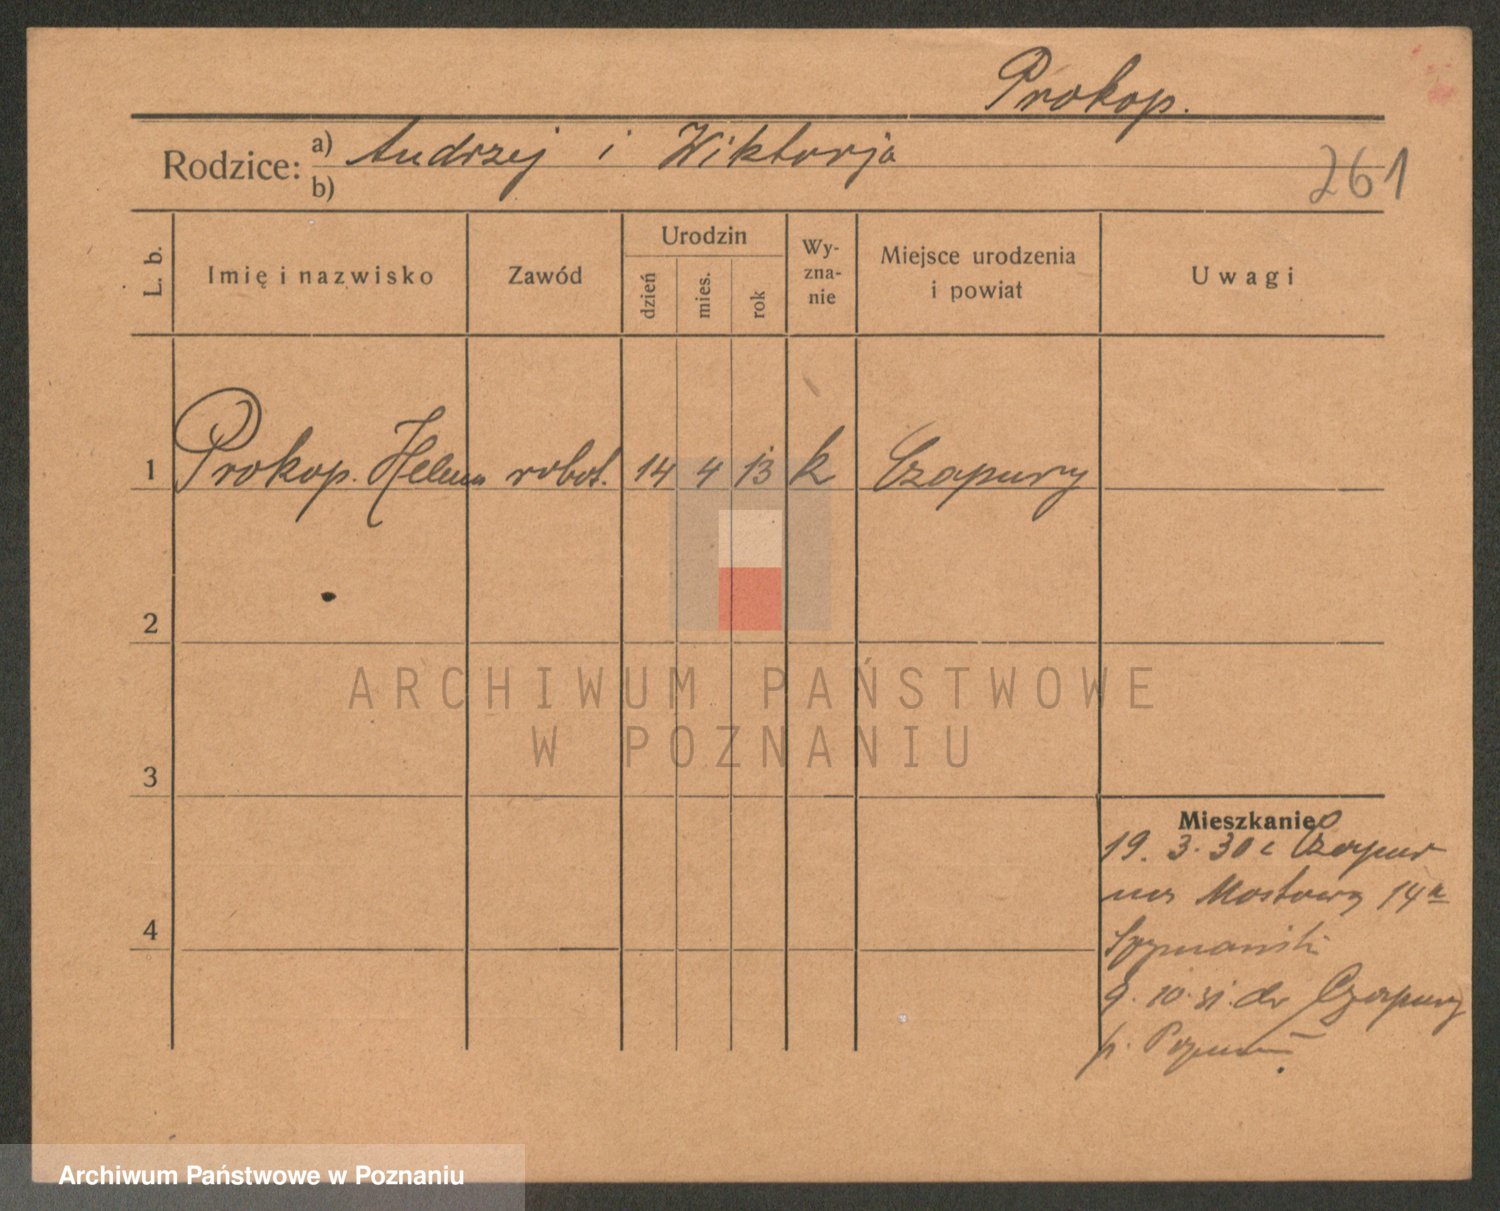 Prokop.
Rodzice: a) Andrzej i Wiktorja
b)
261
L. b. Imię i nazwisko Zawód Urodzin dzień mies. rok Wyznanie Miejsce urodzenia i powiat Uwagi
1 Prokop. Helena robot. 14 4 13 k Czapury
2
3
4
Mieszkanie
19. 3. 30 z Czapur
na Mostową 14a
Szymański
9. 10. 31. do Czapury
p. Poznań
ARCHIWUM PAŃSTWOWE
W POZNANIU
Archiwum Państwowe w Poznaniu